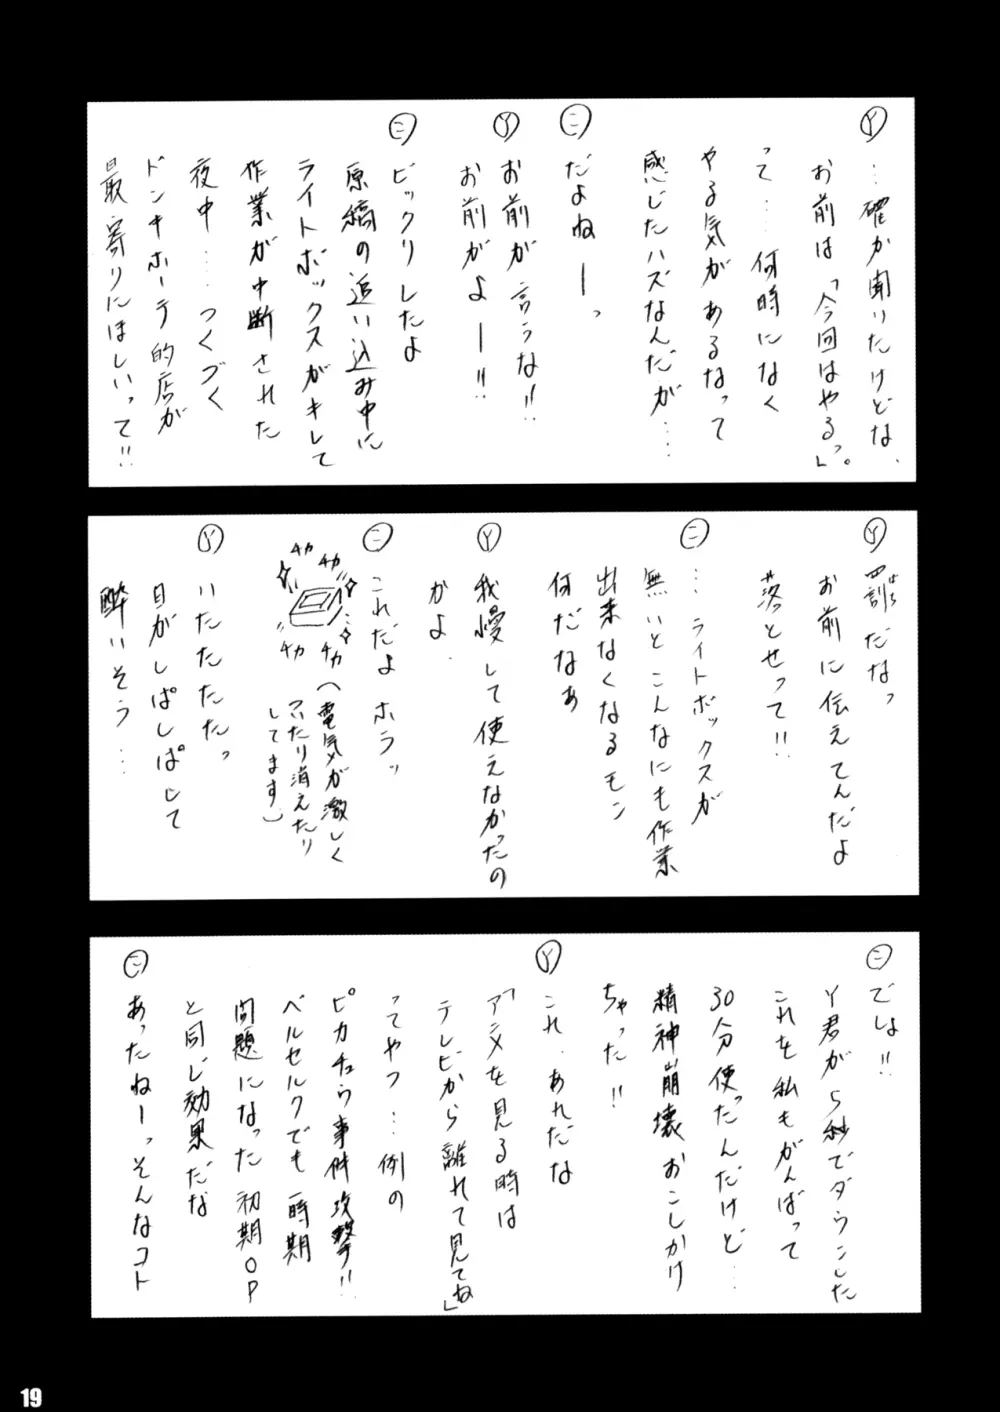 Ⓨ…確か聞いたけどな、
お前は「今回はやるっ」。
って…何時になく
やる気があるなって
感じたハズなんだが……
㊁だよねーっ
Ⓨお前が言うな!!
お前がよー!!
㊁ビックリしたよ
原稿の追い込み中に
ライトボックスがキレて
作業が中断された
夜中…つくづく
ドンキホーテ的店が
最寄りにほしいって!!
Ⓨ罰だなっ
ばち
お前に伝えてんだよ
落とせって!!
㊁…ライトボックスが
無いとこんなにも作業
出来なくなるモン
何だなぁ
Ⓨ我慢して使えなかったの
かよ.
㊁これだよホラッ
チカ
チカ
チカ
チカ
(電気が激しく
ついたり消えたり
してます)
Ⓨいたたたたっ
目がしぱしぱして
酔いそう…
㊁でしょ!!
Y君が5秒でダウンした
これを私もがんばって
30分使ったんだけど…
精神崩壊おこしかけ
ちゃった!!
Ⓨこれ、あれだな
「アニメを見る時は
テレビから離れて見てね」
ってやつ…例の
ピカチュウ事件攻撃!!
ベルセルクでも一時期
問題になった初期OP
と同じ効果だな
㊁あったねーっそんなコト
19